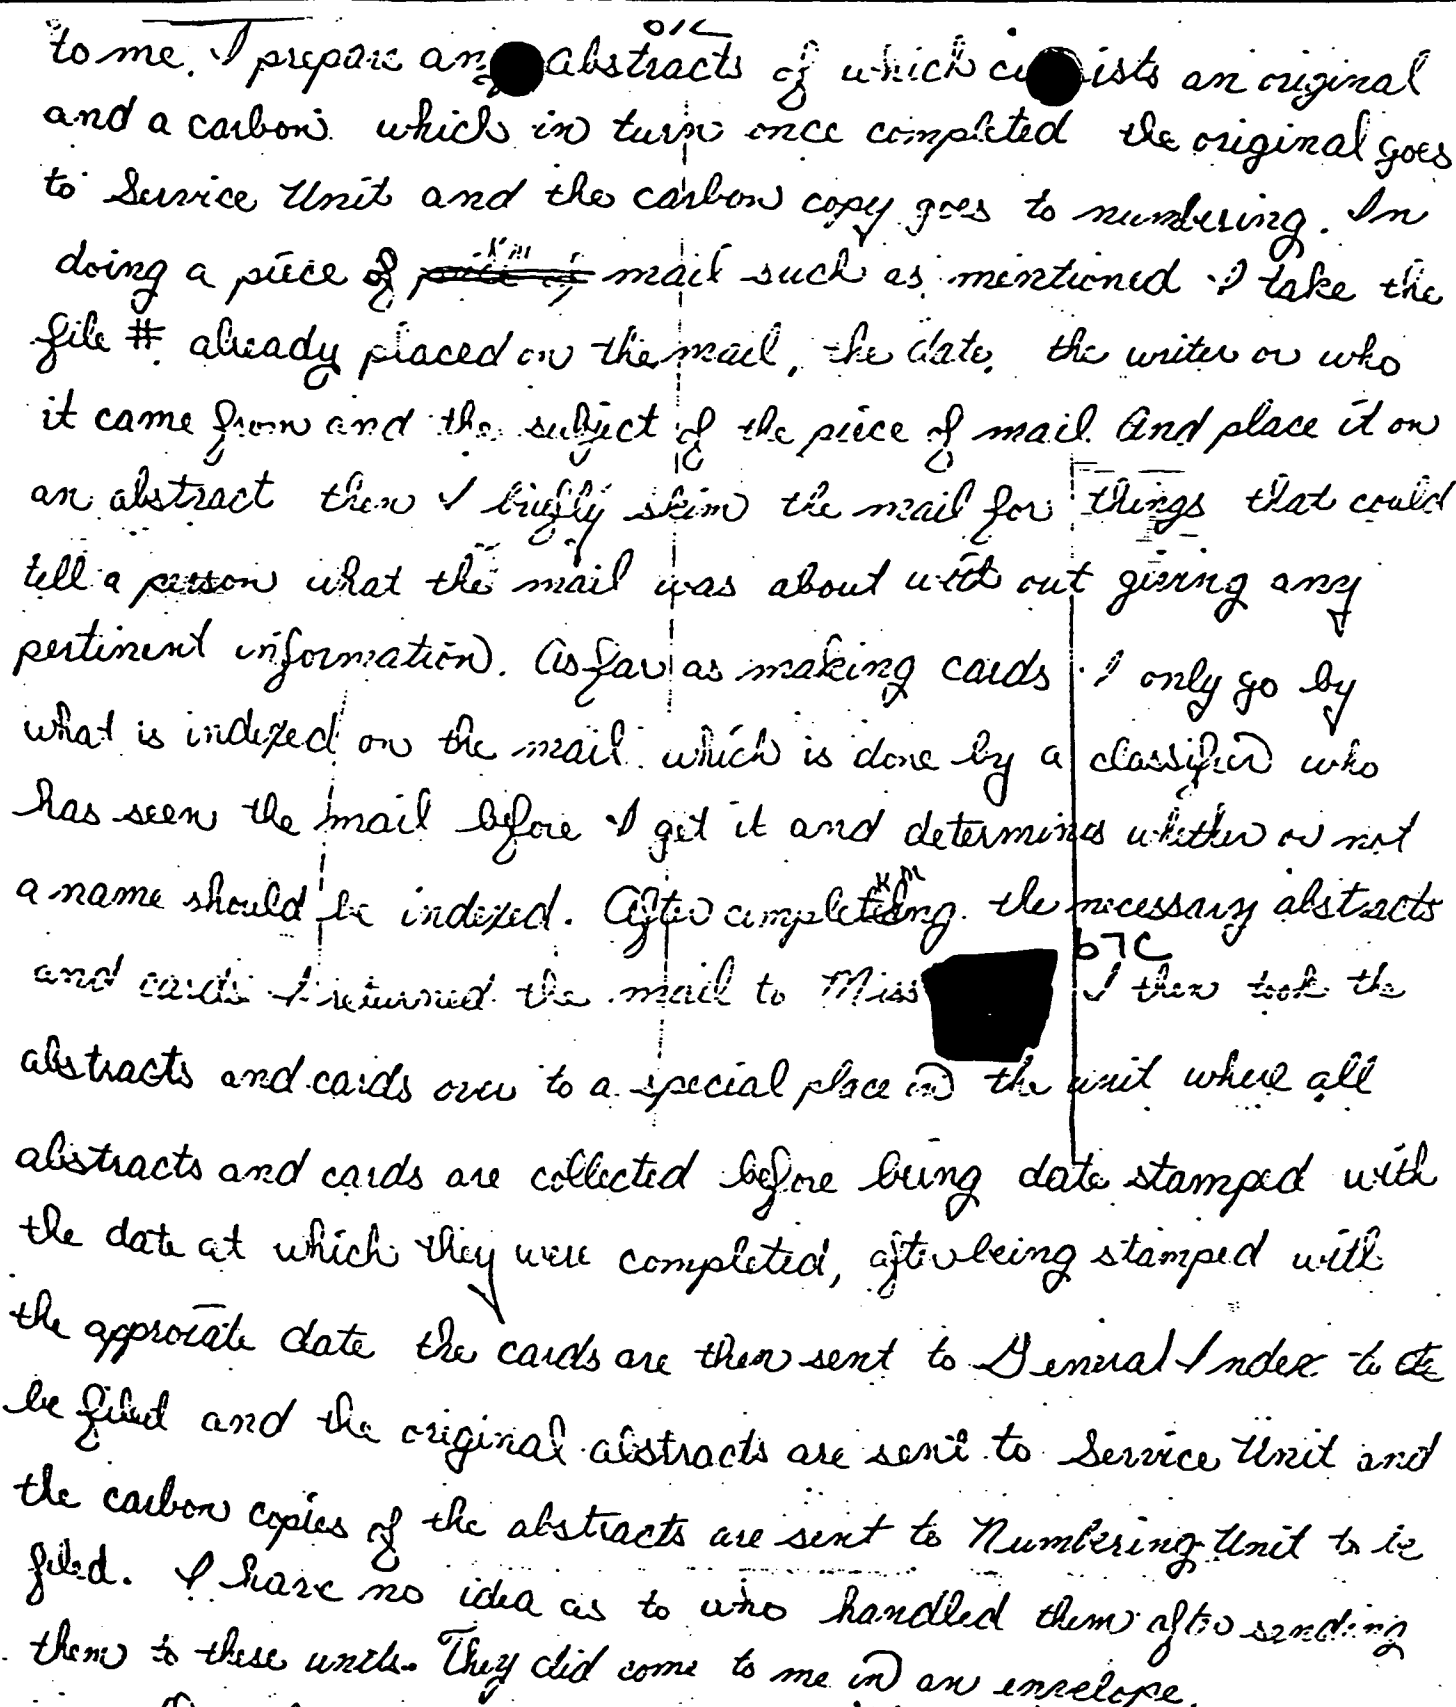 to me. I prepare an abstracts of which c ists an original
and a carbon which in turn once completed the original goes
to Service Unit and the carbon copy goes to numbering. In
doing a piece of mail such as mentioned I take the
file # already placed on the mail, the date, the writer or who
it came from and the subject of the piece of mail. And place it on
an abstract then I briefly skim the mail for things that could
tell a person what the mail was about with out giving any
pertinent information. As far as making cards I only go by
what is indexed on the mail which is done by a classifier who
has seen the mail before I get it and determines whether or not
a name should be indexed. After completing the necessary abstracts
b7C
and cards I returned the mail to Miss I then took the
abstracts and cards over to a special place in the unit where all
abstracts and cards are collected before being date stamped with
the date at which they were completed, after being stamped with
the approiate date the cards are then sent to General Index to
be filed and the original abstracts are sent to Service Unit and
the carbon copies of the abstracts are sent to Numbering Unit to be
filed. I have no idea as to who handled them after sending
them to these units. They did come to me in an envelope.